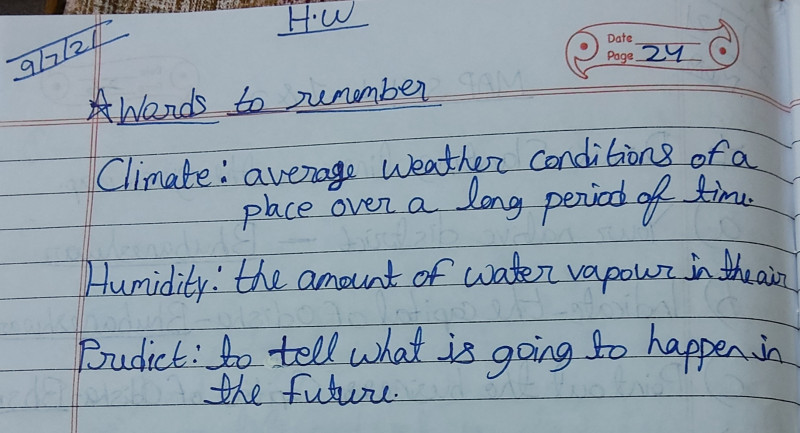 H.W
9/7/21
Date
Page 24
☆ Words to remember
Climate: average weather conditions of a
place over a long period of time.
Humidity: the amount of water vapour in the air
Predict: to tell what is going to happen in
the future.